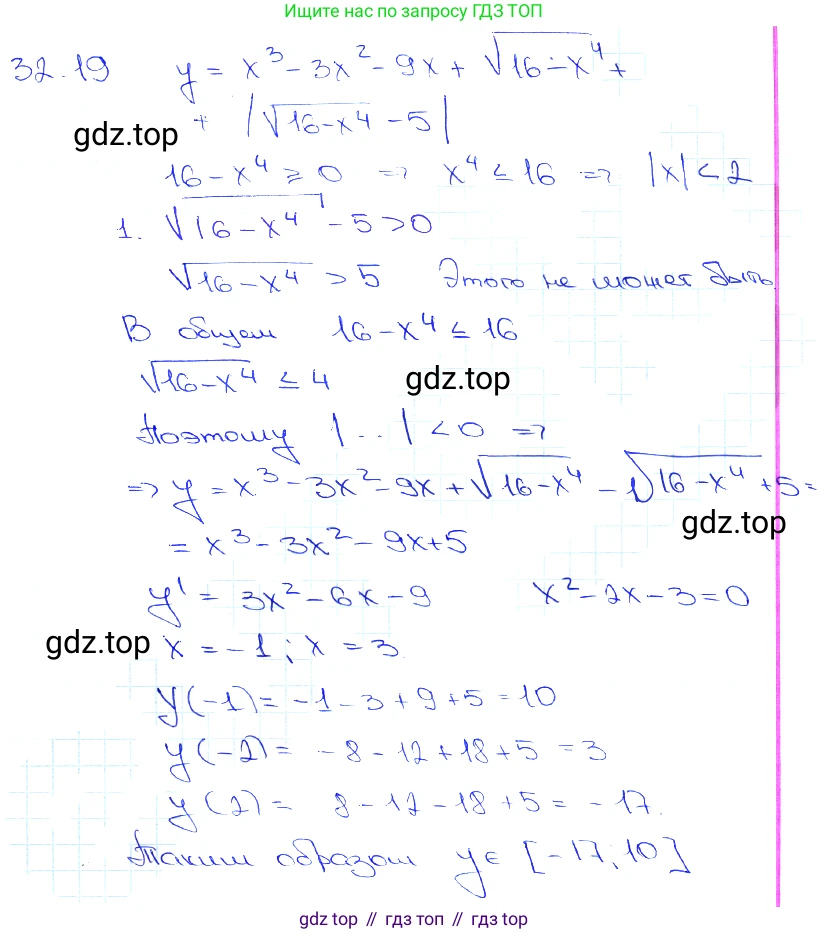 Ищите нас по запросу ГДЗ ТОП
32.19 y = x³ - 3x² - 9x + √(16 - x⁴) +
+ |√(16-x⁴) - 5|
gdz.top
16 - x⁴ ≥ 0 => x⁴ ≤ 16 => |x| < 2
1. √(16 - x⁴) - 5 > 0
√(16 - x⁴) > 5 Этого не может быть
В общем 16 - x⁴ ≤ 16
√(16 - x⁴) ≤ 4 gdz.top
Поэтому |...| < 0 =>
=> y = x³ - 3x² - 9x + √(16 - x⁴) - √(16 - x⁴) + 5 =
gdz.top
= x³ - 3x² - 9x + 5
y' = 3x² - 6x - 9 x² - 2x - 3 = 0
gdz.top x = -1; x = 3.
y(-1) = -1 - 3 + 9 + 5 = 10
y(-2) = -8 - 12 + 18 + 5 = 3
y(2) = 8 - 12 - 18 + 5 = -17.
Таким образом y ∈ [-17; 10]
gdz top // гдз топ // гдз top